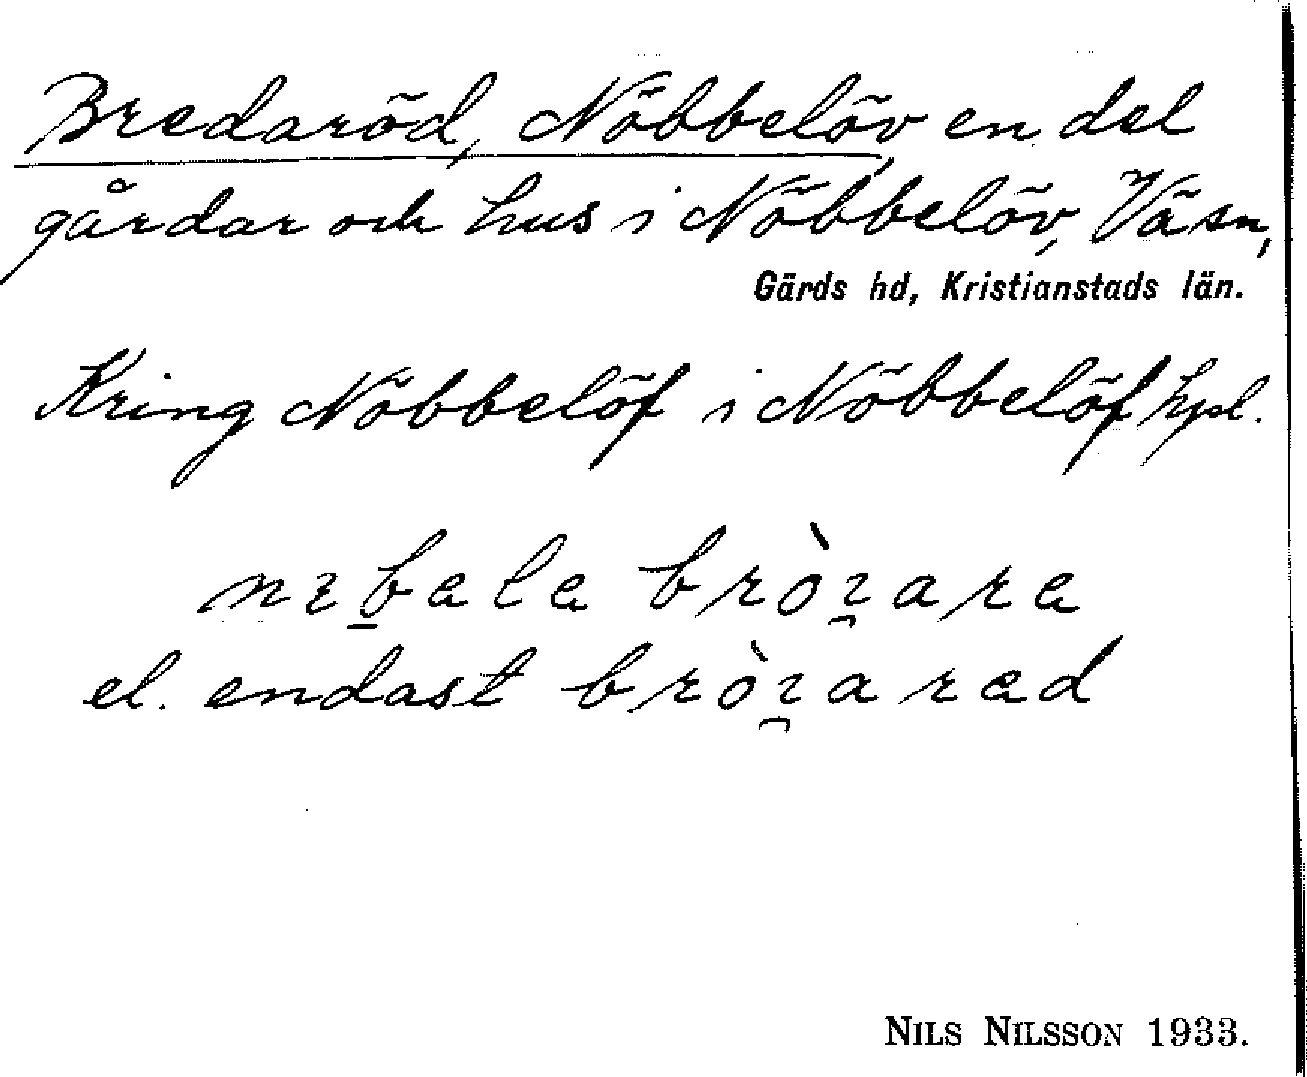 Bredaröd, Nöbbelöv, en del
gårdar och hus i Nöbbelöv, Väsn,
Gärds hd, Kristianstads län.
Kring Nöbbelöf i Nöbbelöf hpl.
el. endast
NILS NILSSON 1933.